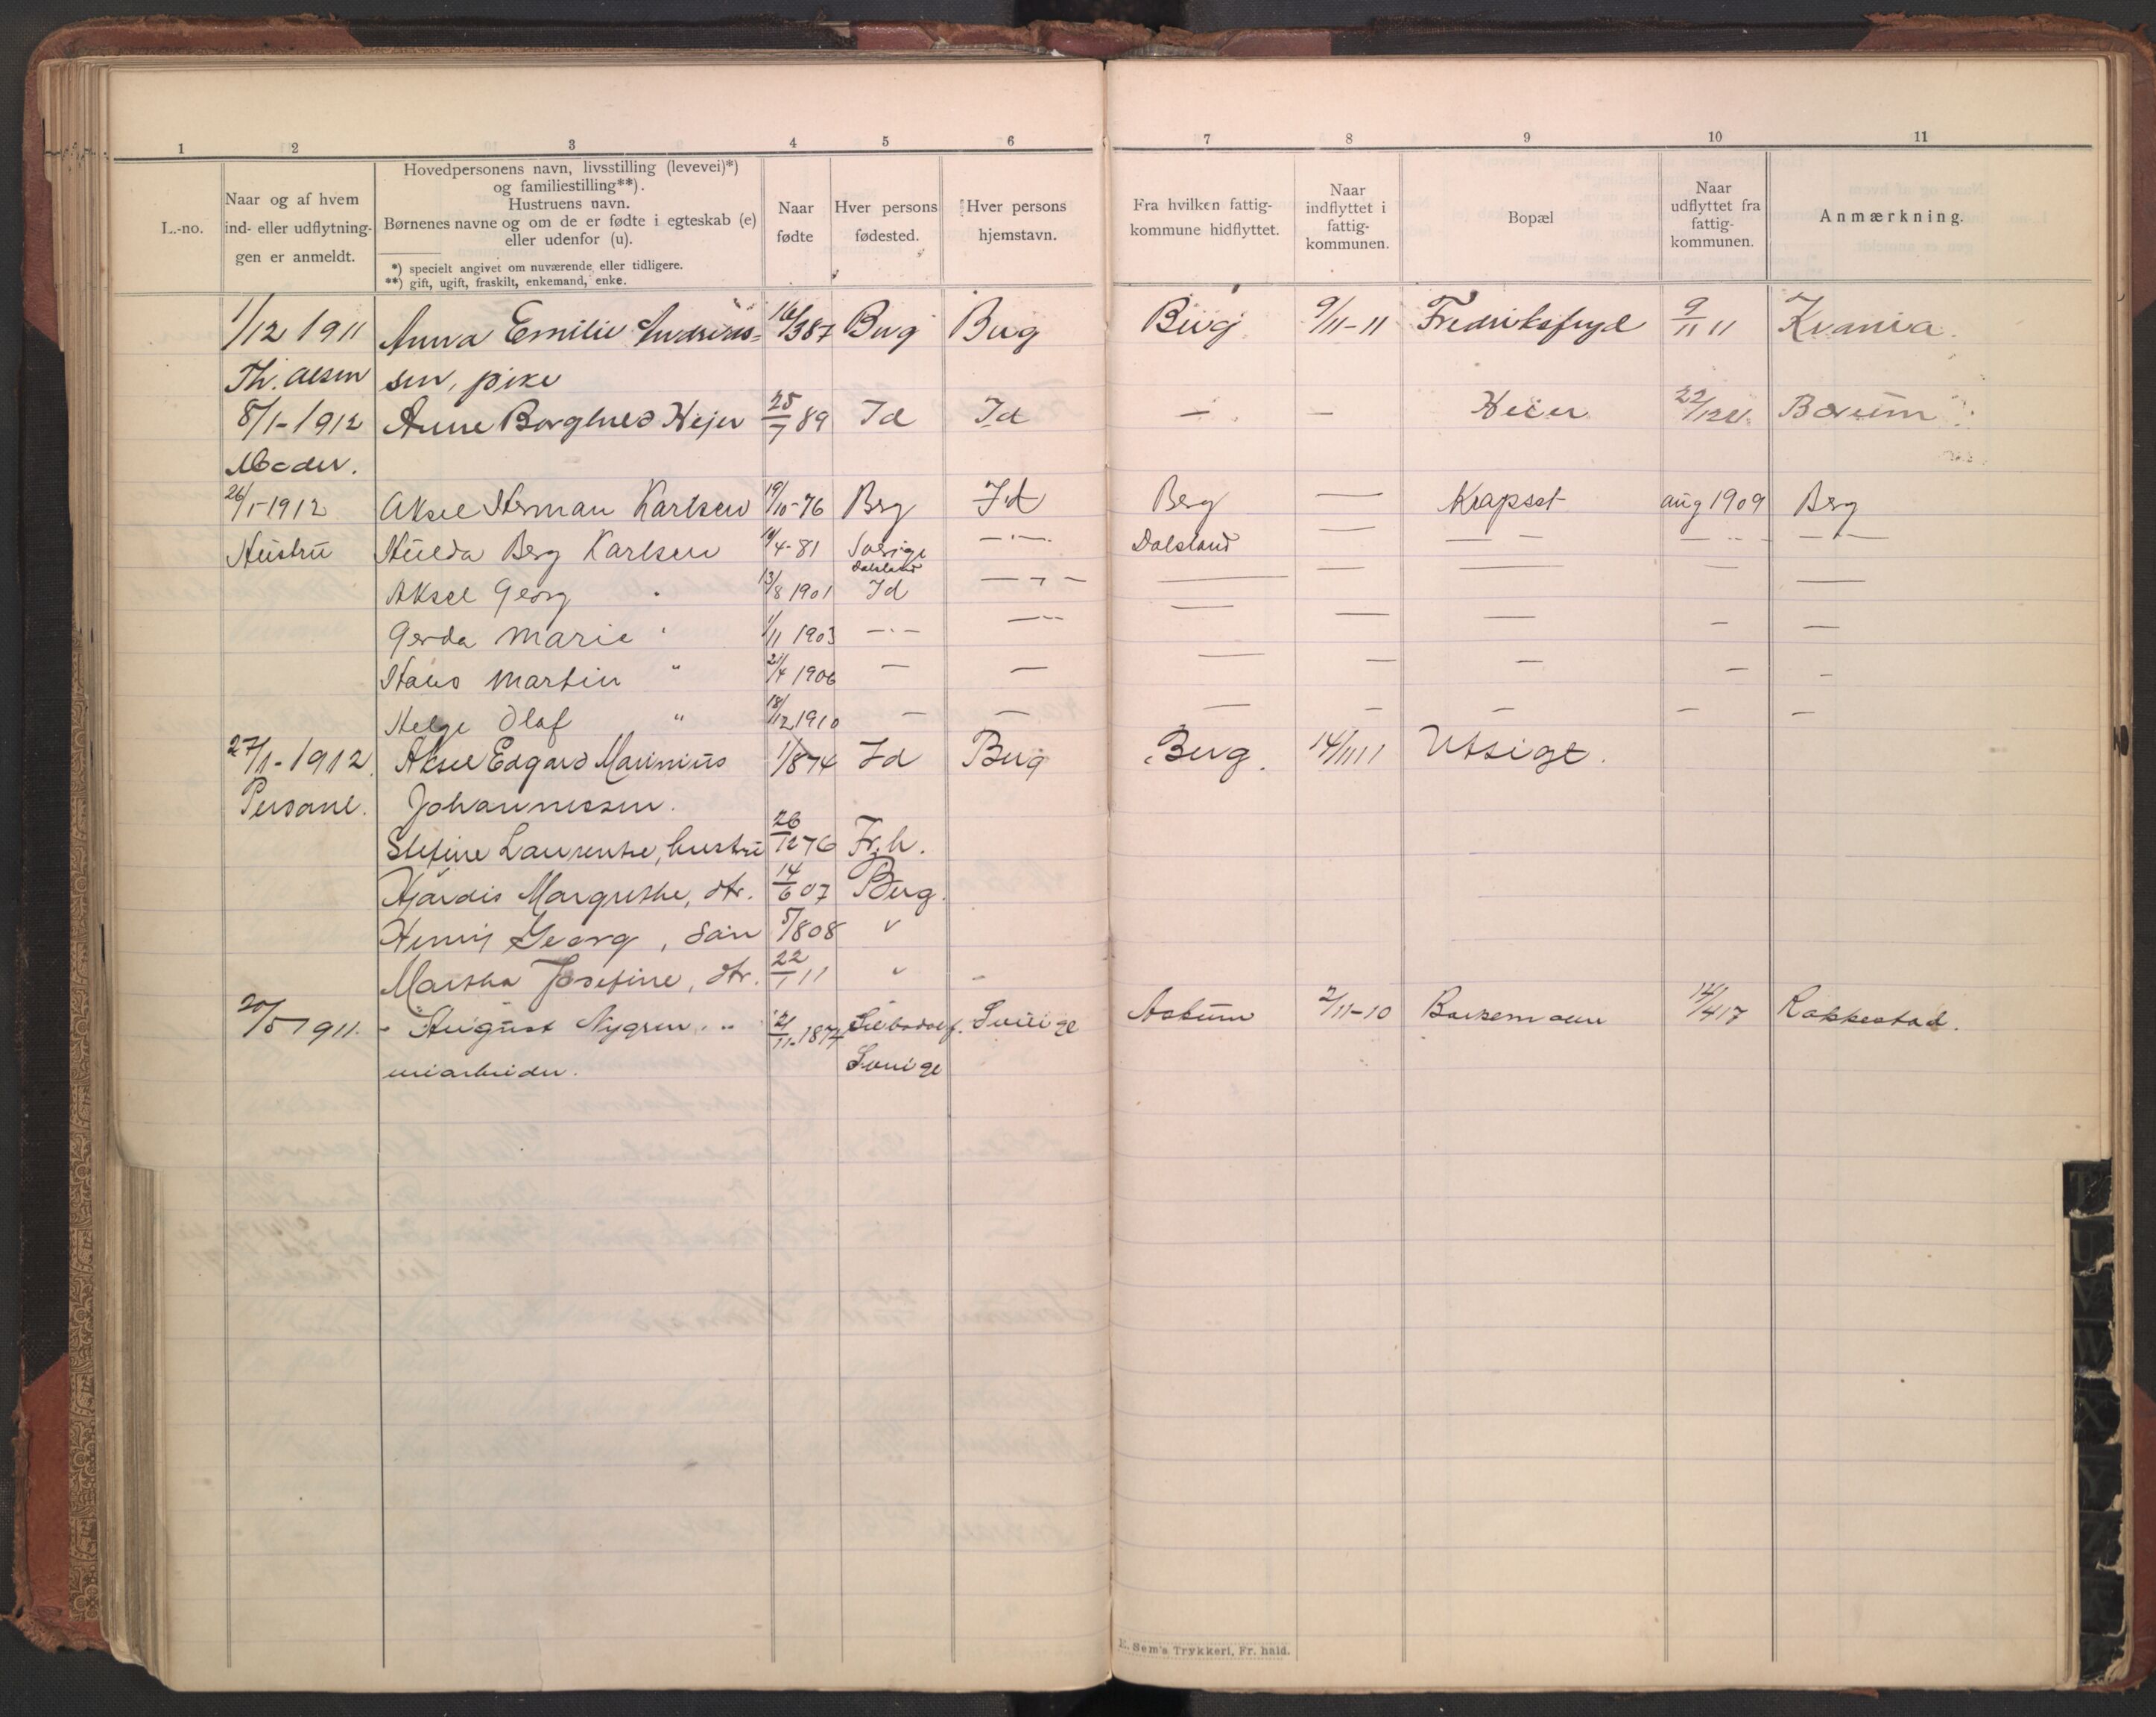 1 2 3 4 5 6 7 8 9 10 11
L.-no.
Naar og af hvem
ind- eller udflytnin-
gen er anmeldt.
Hovedpersonens navn, livsstilling (levevei)*)
og familiestilling**).
Hustruens navn.
Børnenes navne og om de er fødte i egteskab (e)
eller udenfor (u).
*) specielt angivet om nuværende eller tidligere.
**) gift, ugift, fraskilt, enkemand, enke.
Naar
fødte
Hver persons
fødested.
Hver persons
hjemstavn.
Fra hvilken fattig-
kommune hidflyttet.
Naar
indflyttet i
fattig-
kommunen.
Bopæl
Naar
udflyttet fra
fattig-
kommunen.
Anmærkning.
1/12 1911 Anna Emilie Andreas= 16/3 87 Berg Berg Berg 9/11-11 Fredriksfryd 9/11 11 Kr.ania.
Th. Olsen sen, pike
8/1-1912 Anne Borghild Hejer 25/7 89 Id Id — — Heier 22/12 Bærum
Moder.
26/1-1912 Aksel Herman Karlsen 19/10-76 Berg Id Berg — Krapsət aug 1909 Berg
Hustru Hulda Berg Karlsen /4-81 Sverige —"— Dalsland — — — — — — —
Dalsland
Aksel Georg " 13/8 1901 Id — " — — — — — —
Gerda Marie " 1/11 1903 —"— —"— — — — — —
Hans Martin " 21/4 1906 — — — — — — —
Helge Olaf " 18/12 1910 — — — — — — —
27/1-1912 Aksel Edgard Marinius 1/8 74 Id Berg Berg. 14/11 11 Utsigt.
Personl. Johannessen.
Stefine Laurentse, hustru 26/12 76 Fr.h.
Hjørdis Margrethe, dtr. 14/6 07 Berg.
Henry Georg, søn 5/8 08 "
Martha Josefine, dtr. 22/1 11 " -
20/5 1911. - August Nygren, 2/11-1874 Silbodal f. Sverige Askim 2/11-10 12/4 17 Rakkestad.
Sverige
E. Sem's Trykkeri, Fr. hald.